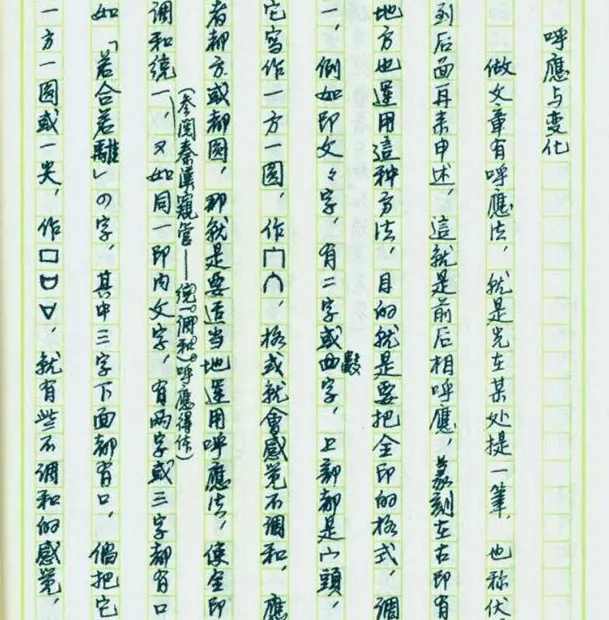 呼應与变化
做文章有呼應法，就是先在某处提一筆，也称伏
到后面再来申述，這就是前后相呼應，篆刻在古印有
地方也運用這种方法，目的就是要把全印的格式，調
一，例如印文々字，有二字或数字，上部都是宀頭，
它寫作一方一圆，作，格式就會感覚不調和，應
者都方或都圆，那就是要适当地運用呼應法，使全印
（参阅秦漢窺管——統一調和，呼應得体）
調和統一，又如同一印内文字，有两字或三字都有口
如「若合若離」の字，其中三字下面都有口，倘把它
一方一圆或一尖，作，就有些不調和的感覚，